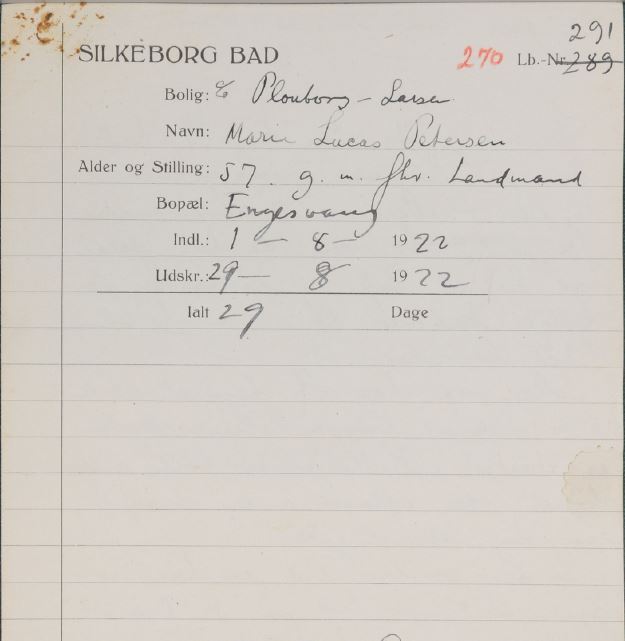 291
SILKEBORG BAD 270 Lb.-Nr. 289
Bolig: Plouborg - Larsen
Navn: Marie Lucas Petersen
Alder og Stilling: 57. g. m. fhv. Landmand
Bopæl: Engesvang
Indl.: 1 — 8 — 1922
Udskr.: 29 — 8 1922
Ialt 29 Dage